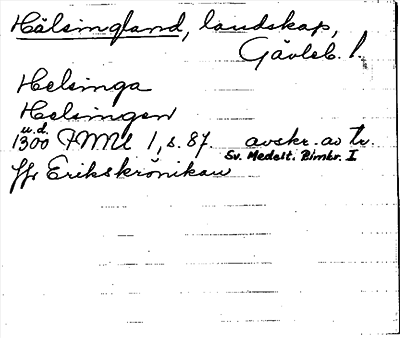 Hälsingland, landskap,
Gävleb. l.
Helsinga
Helsingen
u.d.
1300 FMU 1, s. 87. avskr. av tr.
Sv. Medelt. Rimkr. I
Erikskrönikan